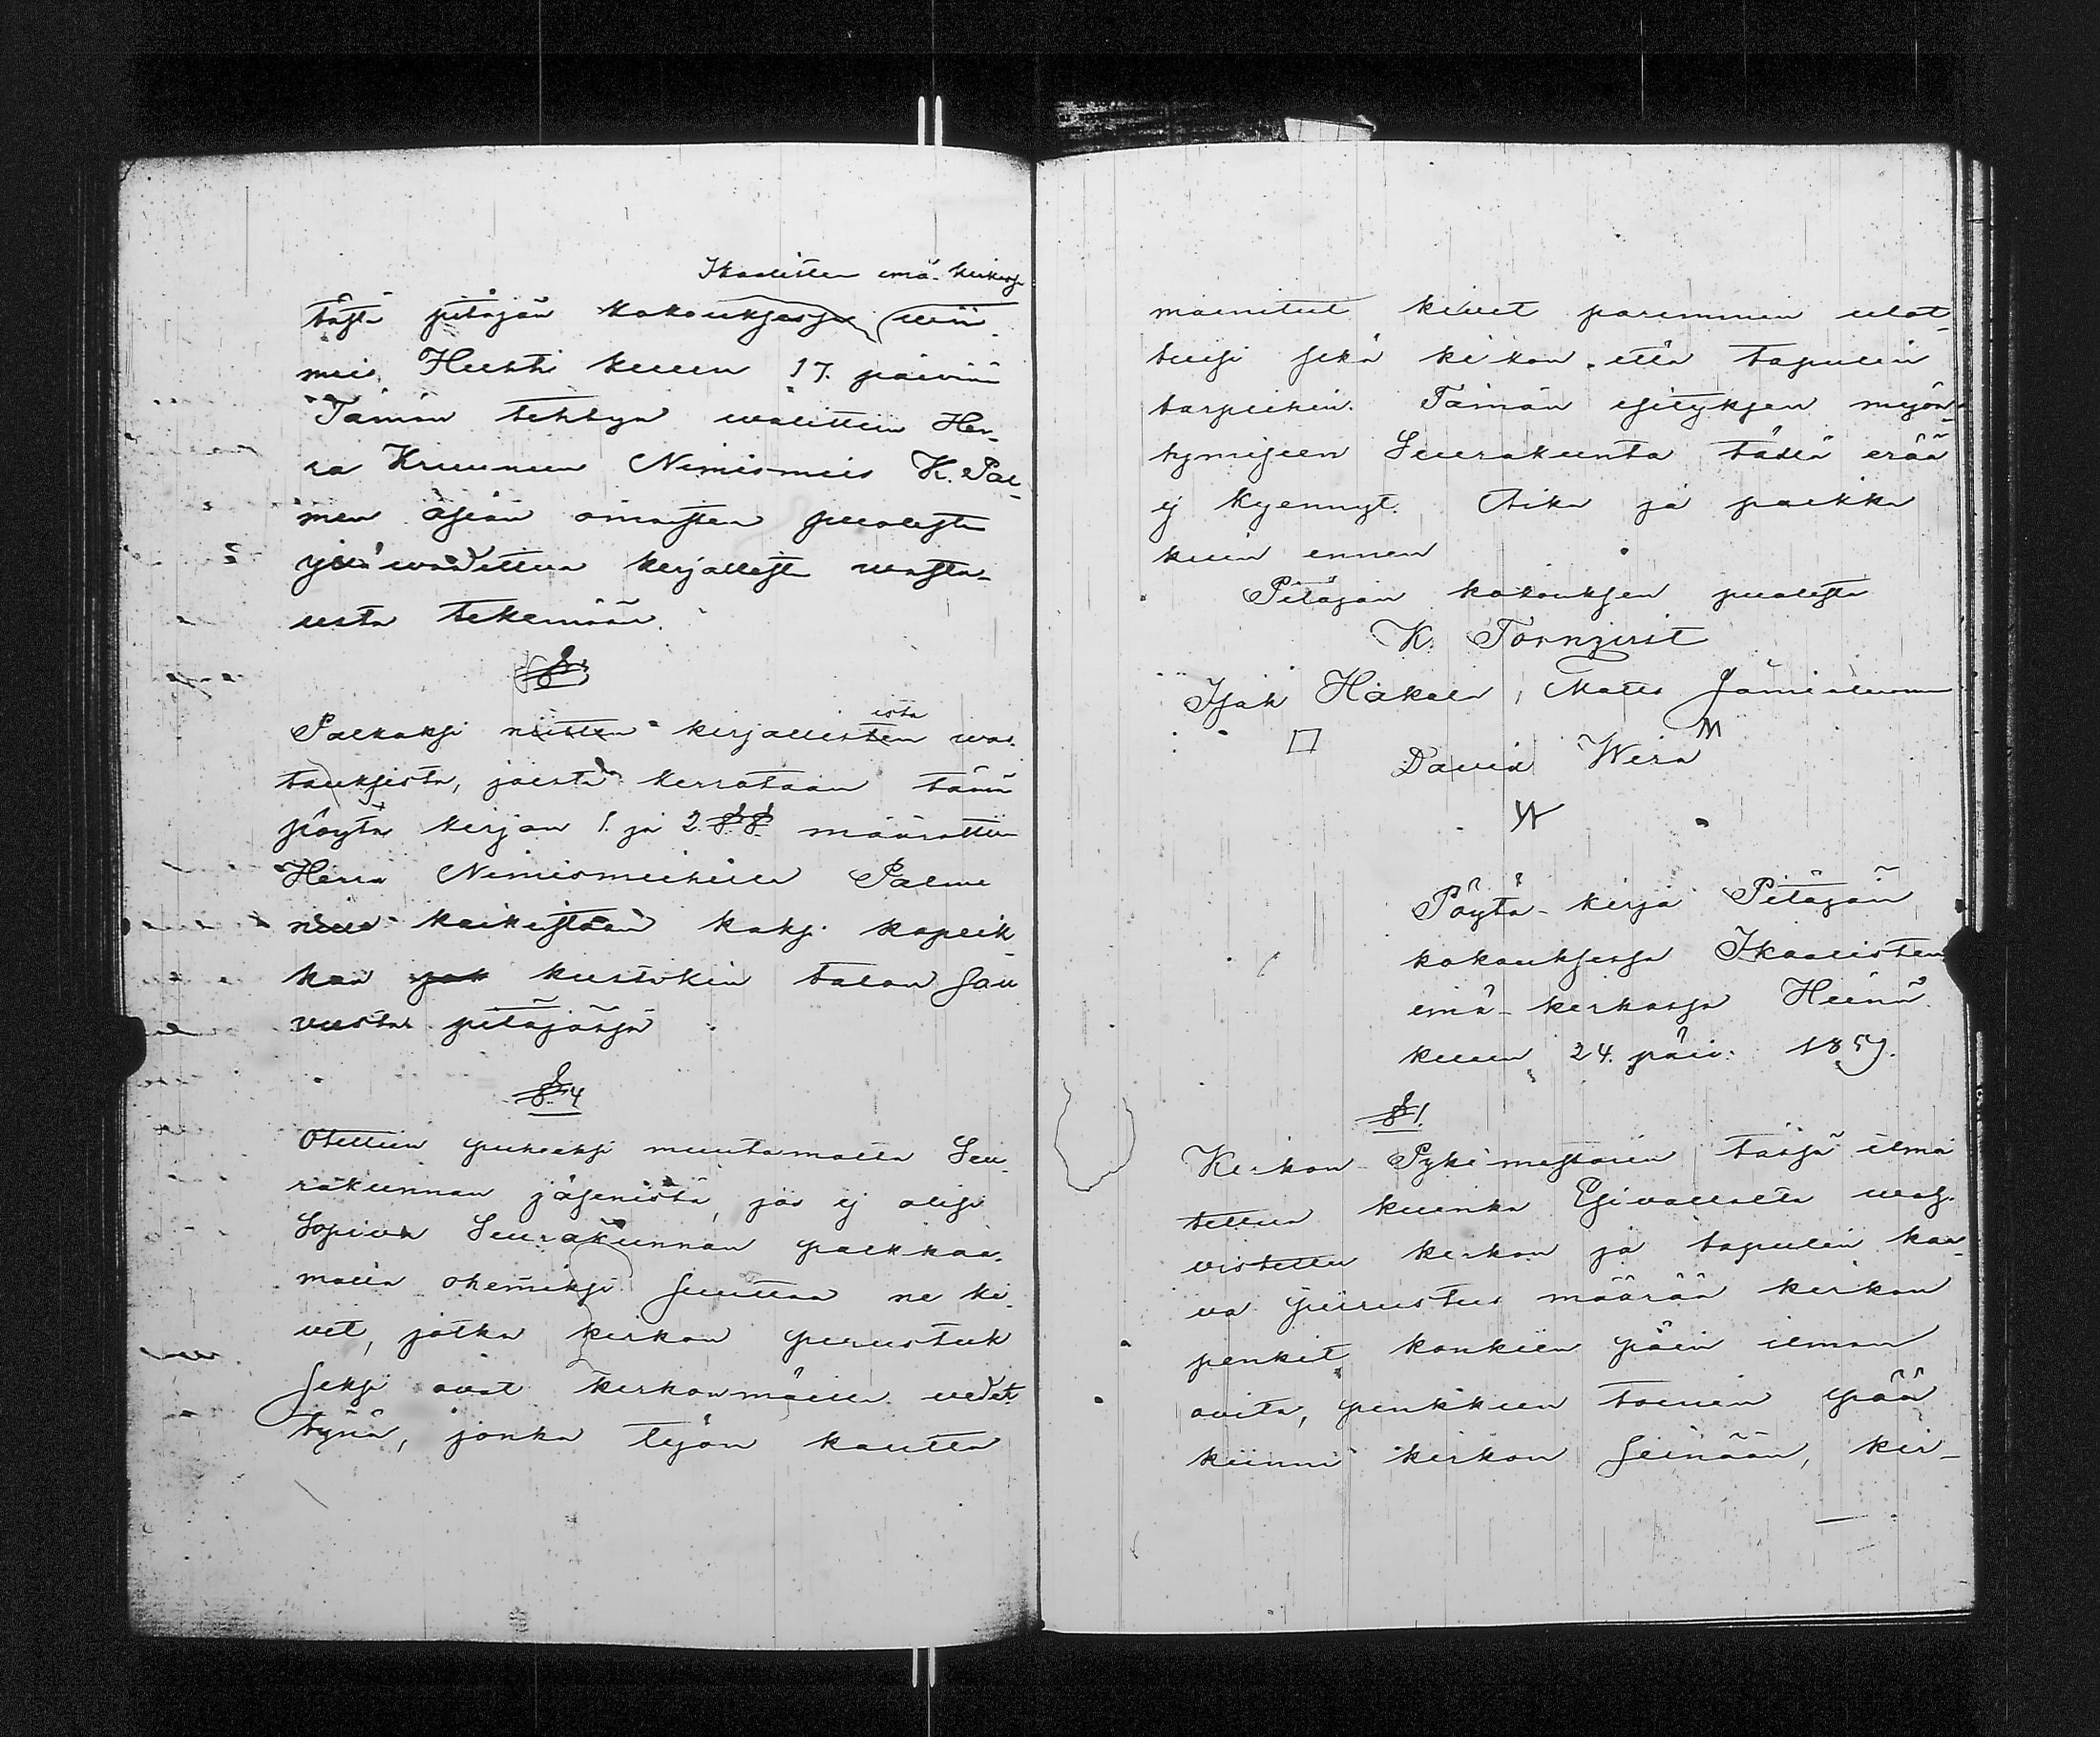 Ikaalisten emä-kirkosja
tästä pitäjän kokouksesja wii
meis Huhti kuun 17. päivinä
Tämän tehtyä walittiin Her-
ra Kruunun Nimismies K. Pal-
men asian omaisten puolesta
yllä waadittua kirjallista wasta-
usta tekemään.
§ 3
Palkaksi niitten kirjallisten ista was-
tauksista, joista kerrotaan tämä
pöytä kirjan 1. ja 2. §§ määrättiin
Herra Nimismiehelle Palme
nille kaikistaan kaksi kopeik
kaa jok kustakin talon Sau
vusta pitäjäsjä
§ 4
Otettiin puheeksi muutamalta Seu-
rakunnan jäsenistä, jos ej olisi
Sopiva Seurakunnan palkkaa-
malla ohemiksi Suuttaa ne ki-
vet, jotka kirkon perustuk
Seksi ovat kirkonmäelle vedet-
tynä, jonka työn kautta
mainitut kivet paremmin ulot-
tuisi sekä kirkon että tapulin
tarpeihin. Tämän esityksen myön-
tymiseen Seurakunta tällä erää
ej kyennyt. Aika ja paikka
kuin ennen
Pitäjän kokouksen puolesta
K. Törnqvist
Isak Hakala, Matts Jämiäluoma
David Wira
Pöytä-kirja Pitäjän
kokouksesja Ikaalisten
emä-kirkosja Heinä
kuun 24. päiv. 1859.
§ 1.
Kirkon Pykimestarin täsjä ilmoi
tettua kuinka Esivallalta wah-
vistettu kirkon ja tapulin kaa-
va piirustus määrää kirkon
penkit konkiin päin ilman
ovita, penkkien toinen pää
kiinni kirkon Seinään, kir-